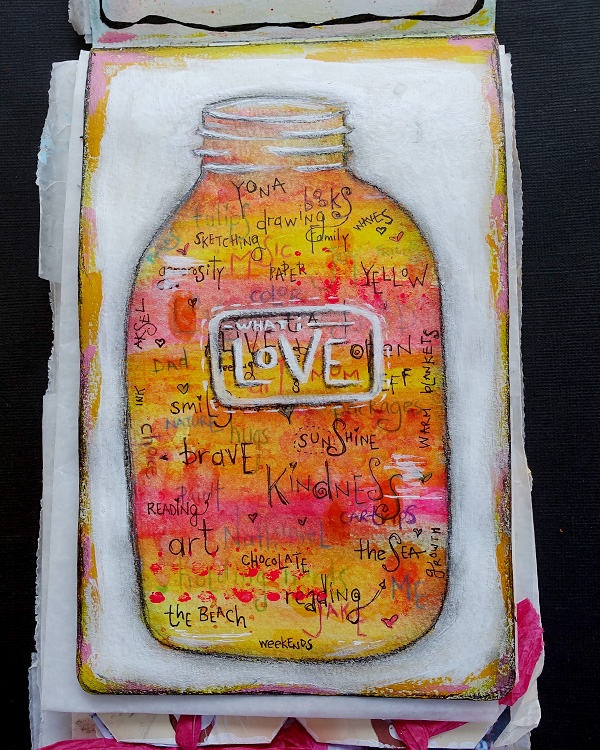 YONA
books
tulips
drawing
WAVES
SKETCHING
family
MUSIC
generosity
PAPER
YELLOW
COLOR
AKSEL
WHAT I
LOVE
DAD
MOM
INK
smile
packages
WARM blankets
NATURE
hugs
SUNSHINE
brave
KINDNESS
READING
art
Nathaniel
CHOCOLATE
the SEA
GROWTH
holding hands
reading
ME
JAKE
the BEACH
weekends